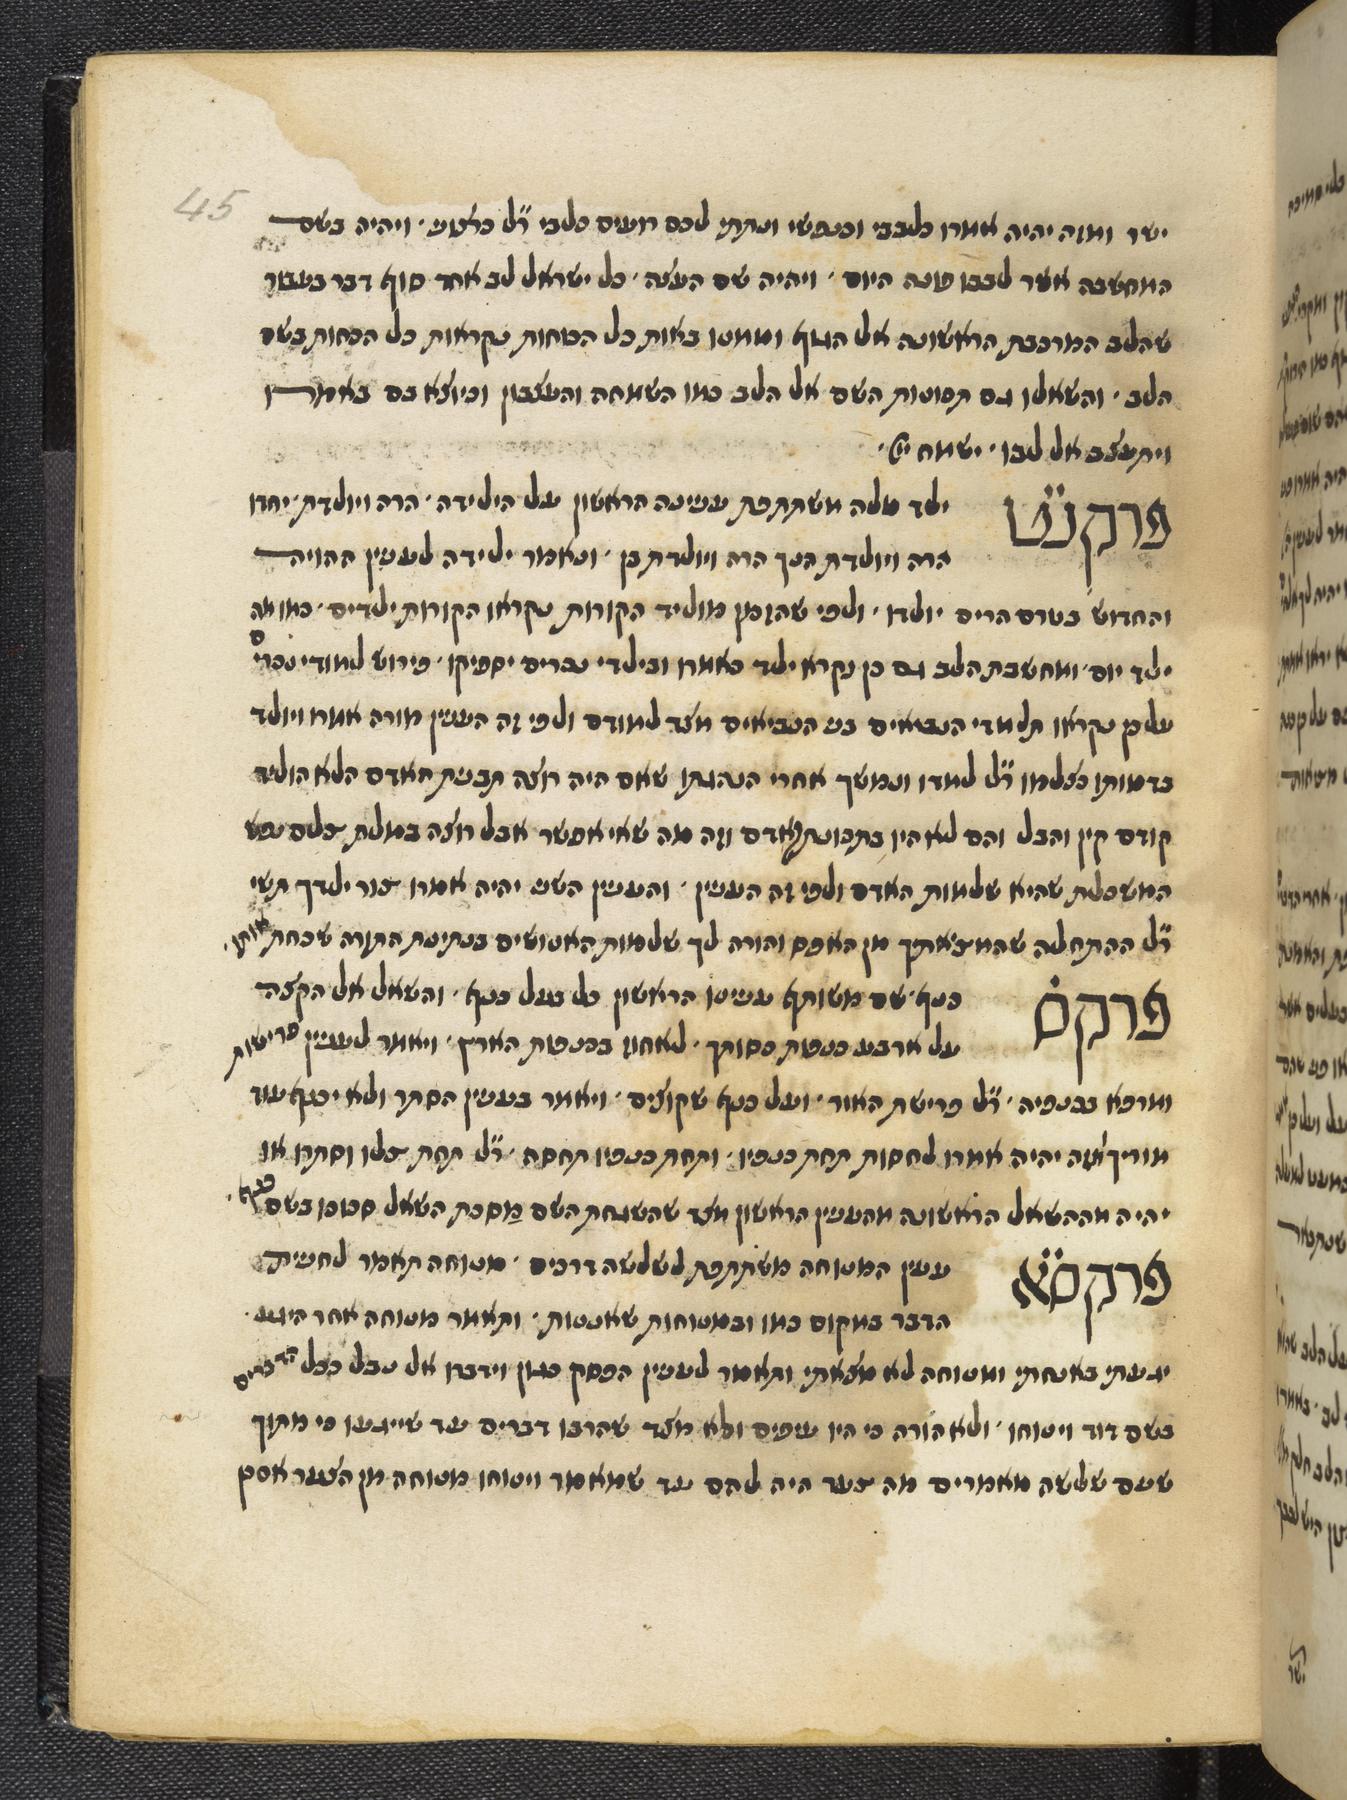 45
ישר ומזה יהיה אמרו כלבבי וכנפשי ונתתי לכם רועים כלבי ר״ל כרצוני · ויהיה בשם
המחשבה אשר לבבו פונה היום · ויהיה שם העצה · כל ישראל לב אחד סוף דבר בעבור
שהלב המרכבת הראשונה אל הגוף וממנו באות כל הכוחות נקראות כל הכחות בשם
הלב · והשאלו גם תכונות השם אל הלב כמו השמחה והעצבון וכיוצא בם באמרו
ויתעצב אל לבו · ישמח יי ·
פרק נ״ט ילד מלה משתתפת ענינה הראשון על הילידה · הרה ויולדת יחדו
הרה ויולדת הנך הרה ויולדת בן · ונאמר ילידה לענין ההויה
והחדוש בטרם הרים יולדו · ולפי שהזמן מוליד הקורות נקראו הקורות ילדים · כמו מה
ילד יום · ומחשבת הלב גם כן נקרא ילד כאמרו ובילדי נכרים יספיקו · פירוש למודי נכרים
על כן נקראו תלמידי הנביאים בני הנביאים מצד למודם ולפי זה הענין מורה אמרו ויולד
בדמותו כצלמו ר״ל למדו ונמשך אחרי הנהגתו שאם היה רוצה תבנית האדם הלא הוליד
קודם קין והבל והם לא היו בתכונת האדם וזה מה שאי אפשר אבל רוצה במלת צלם נפש
המשכלת שהיא שלמות האדם ולפי זה הענין · והענין השני יהיה אמרו צור ילדך תשי
ר״ל ההתחלה שהמציאתך מן האפס והורה לך שלמות האנושים בנתינת התורה שכחת אותו ·
פרק ס׳ כנף שם משותף ענינו הראשון כל בעל כנף · והשאל אל הקצה
על ארבע כנפות כסותך · לאחוז בכנפות הארץ · ויאמר לענין פרישות
ומרפא בכנפיה · ר״ל פרישת האור · ועל כנף שקוצים · ויאמר בענין הסתר ולא יכנף עוד
מוריך וזה יהיה אמרו לחסות תחת כנפיו · ותחת כנפיו תחסה · ר״ל תחת צלו וסתרו או
יהיה מההשאל הראשונה מהענין הראשון מצד שהשגחת השם מסכת השאל סכוכו בשם כנף ·
פרק ס״א ענין המנוחה משתתפת לשלשה דרכים · מנוחה תאמר לחשית
הדבר במקום כמו ובמנוחות שאננות · ותאמר מנוחה אחר היגע ·
יגעתי באנחתי ומנוחה לא מצאתי ותאמר לענין הפסק כגון וידברו אל נבל ככל הדברים
בשם דוד וינוחו · ולא הורה כי היו עיפים ולא מצד שהרבו דברים עד שייגעו כי מתוך
שעם שלשה מאמרים מה צער היה להם עד שמאמר וינוחו מנוחה מן הצער אסכן